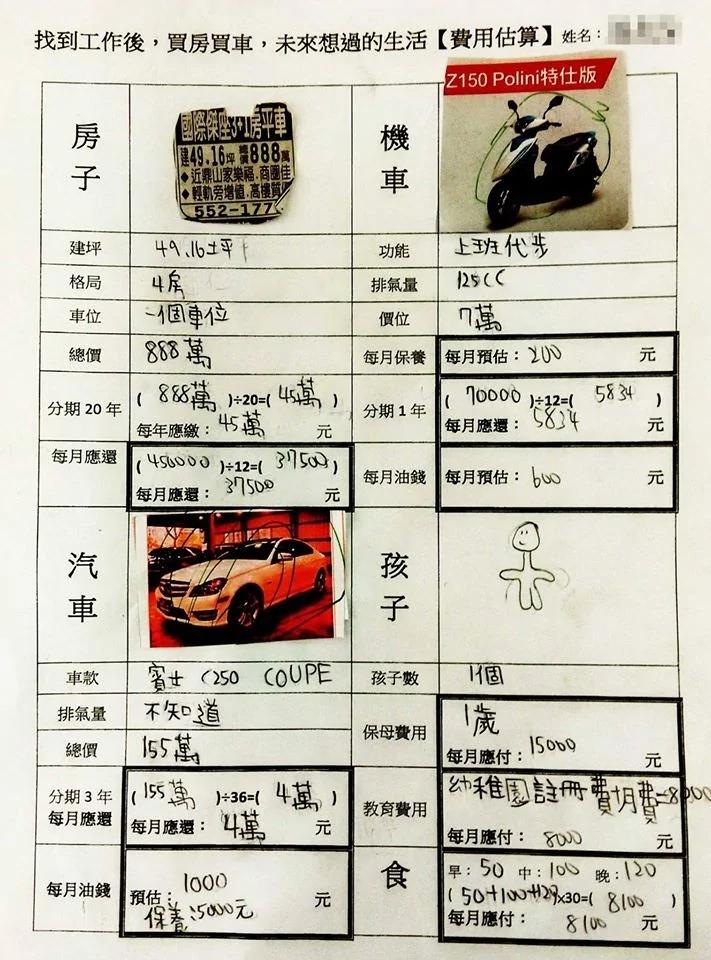 找到工作後，買房買車，未來想過的生活【費用估算】姓名：
房子
國際傑座3+1房平車
建49.16坪 總價888萬
◆近鼎山家樂福．商圈佳
◆輕軌旁增值．高樓質
552-177
機車
Z150 Polini特仕版
建坪 49.16坪
功能 上班代步
格局 4房
排氣量 125CC
車位 一個車位
價位 7萬
總價 888萬
每月保養 每月預估：200 元
分期20年 ( 888萬 )÷20=( 45萬 )
每年應繳：45萬 元
分期1年 ( 70000 )÷12=( 5834 )
每月應還：5834 元
每月應還 ( 450000 )÷12=( 37500 )
每月應還：37500 元
每月油錢 每月預估：600 元
汽車
孩子
車款 賓士 C250 COUPE
孩子數 1個
排氣量 不知道
保母費用 1歲
每月應付：15000 元
總價 155萬
分期3年 ( 155萬 )÷36=( 4萬 )
每月應還 每月應還：4萬 元
教育費用 幼稚園註冊費+月費=8000
每月應付：8000 元
每月油錢 預估：1000 元
保養：5000元
食
早：50 中：100 晚：120
( 50+100+120 )x30=( 8100 )
每月應付：8100 元